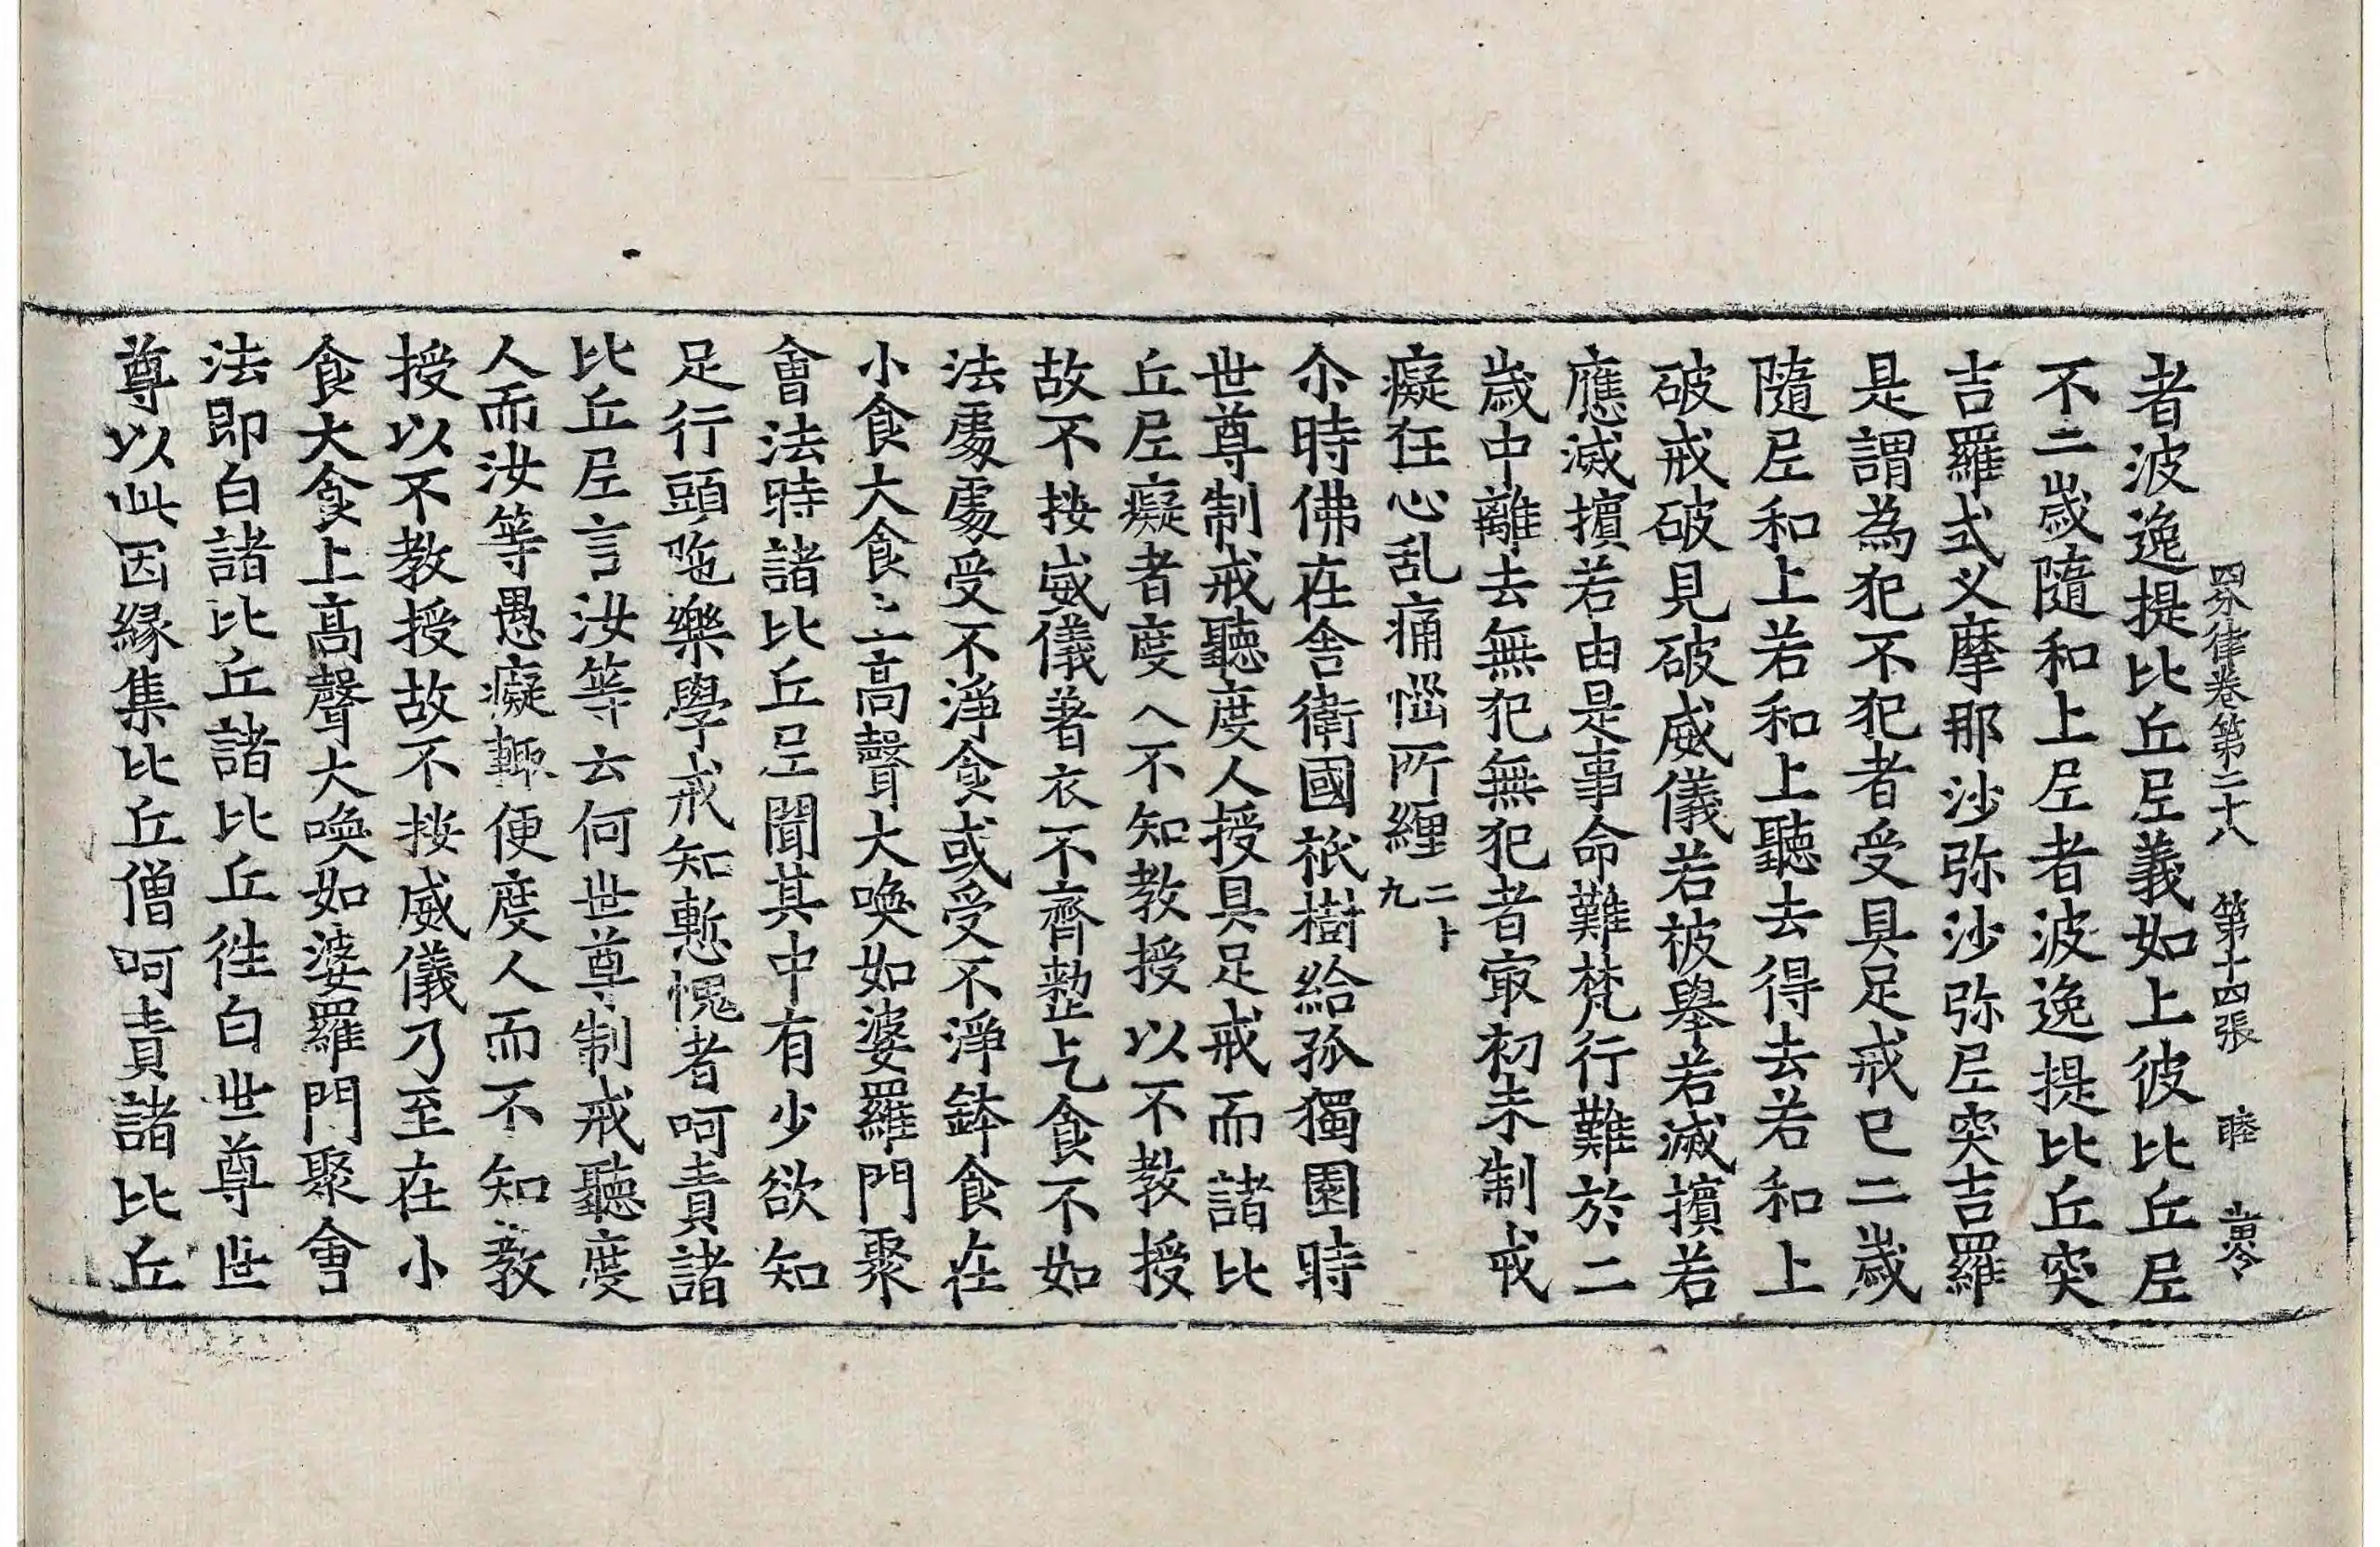 四分律卷第二十八 第十四張 睦
者波逸提比丘尼義如上彼比丘尼
不二歲隨和上尼者波逸提比丘突
吉羅式叉摩那沙弥沙弥尼突吉羅
是謂為犯不犯者受具足戒已二歲
隨尼和上若和上聽去得去若和上
破戒破見破威儀若被舉若滅擯若
應滅擯若由是事命難梵行難於二
歲中離去無犯無犯者㝡初未制戒
癡狂心乱痛惱所纏 二十九
尒時佛在舍衛國祇樹給孤獨園時
世尊制戒聽度人授具足戒而諸比
丘尼癡者度人不知教授以不教授
故不按威儀著衣不齊整乞食不如
法處處受不淨食或受不淨鉢食在
小食大食上高聲大喚如婆羅門聚
會法時諸比丘尼聞其中有少欲知
足行頭陁樂學戒知慙愧者呵責諸
比丘尼言汝等云何世尊制戒聽度
人而汝等愚癡輙便度人而不知教
授以不教授故不按威儀乃至在小
食大食上高聲大喚如婆羅門聚會
法即白諸比丘諸比丘徃白世尊世
尊以此因緣集比丘僧呵責諸比丘